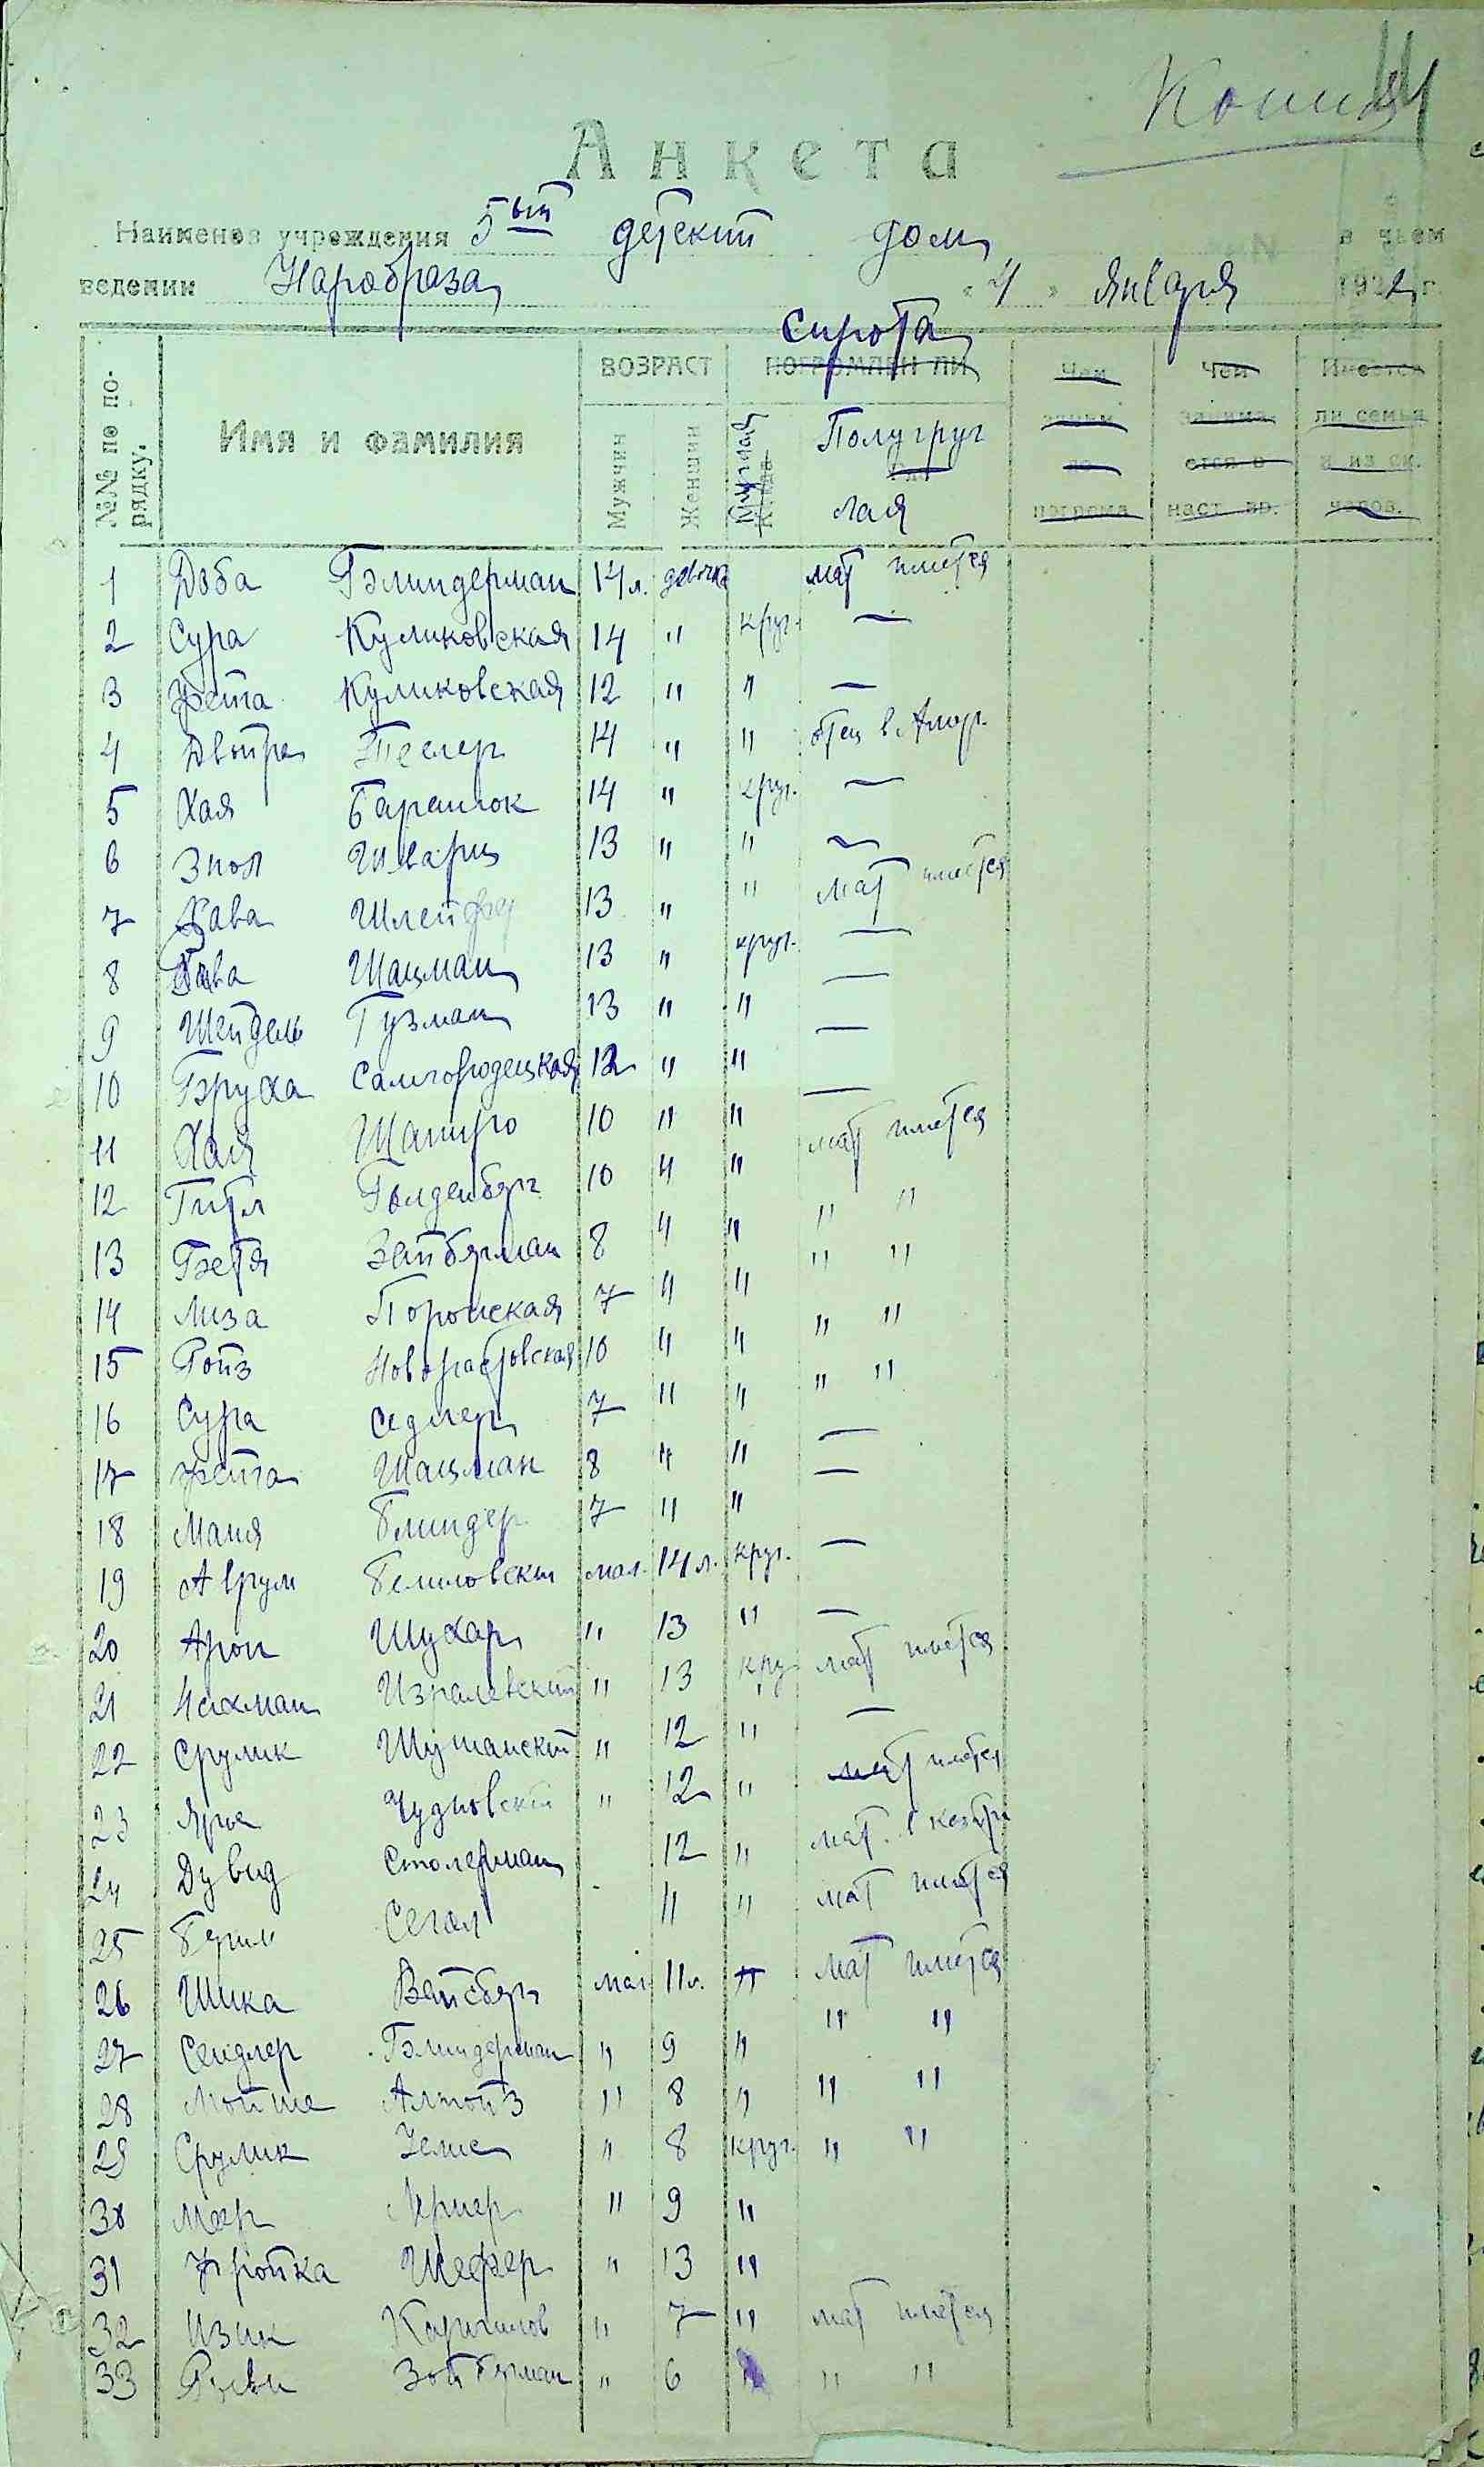 Копия
Анкета
Наименов учреждения 5ый детский дом в чьем
ведении Наробраза "4" января 1922 г.
сирота
№№ по по-рядку.
Имя и фамилия
ВОЗРАСТ
Мужчин
Женщин
ПОГРОМЛЕН ЛИ
Круглая
Полукруг
лая
Чем заним до погрома
Чем занима- ется в наст. вр.
Имеется ли семья и из ск. челов.
1 Доба Блиндерман 14 л. девочка мат имется
2 Сура Куликовская 14 " круг. —
3 Фейга Куликовская 12 " " —
4 Двойра Теслер 14 " " отец в Амер.
5 Хая Баранюк 14 " круг. —
6 Зисл Шварц 13 " " —
7 Хава Шлейфер 13 " " мат имеется
8 Хава Шацман 13 " круг. —
9 Шейдель Гузман 13 " " —
10 Бруха Самгородецкая 12 " " —
11 Хая Шапиро 10 " " —
12 Гитл Голденберг 10 " " мат имется
13 Бетя Зайберман 8 " " " "
14 Лиза Поройская 7 " " " "
15 Ройз Новорастовская 10 " " " "
16 Сура Седлер 7 " " " "
17 Фейга Шацман 8 " " —
18 Маня Блиндер 7 " " —
19 Аврум Белиловский мал. 14 л. круг. —
20 Арон Шухар " 13 " —
21 Нахман Израилевский " 13 круг мат имется
22 Срулик Шушанский " 12 " —
23 Чудновский " 12 " мат имется
24 Дувид Столерман 12 " мат. в
25 Берил Сегал 11 " мат имется
26 Шика Вайсберг мал 11 л. " мат имется
27 Сендлер Блиндерман " 9 " " "
28 Мойше " 8 " " "
29 Срулик " 8 круг. " "
30 Меер Лернер " 9 "
31 Фройка Шефер " 13 "
32 Изик " 7 " мат имется
33 Зайберман " 6 " "